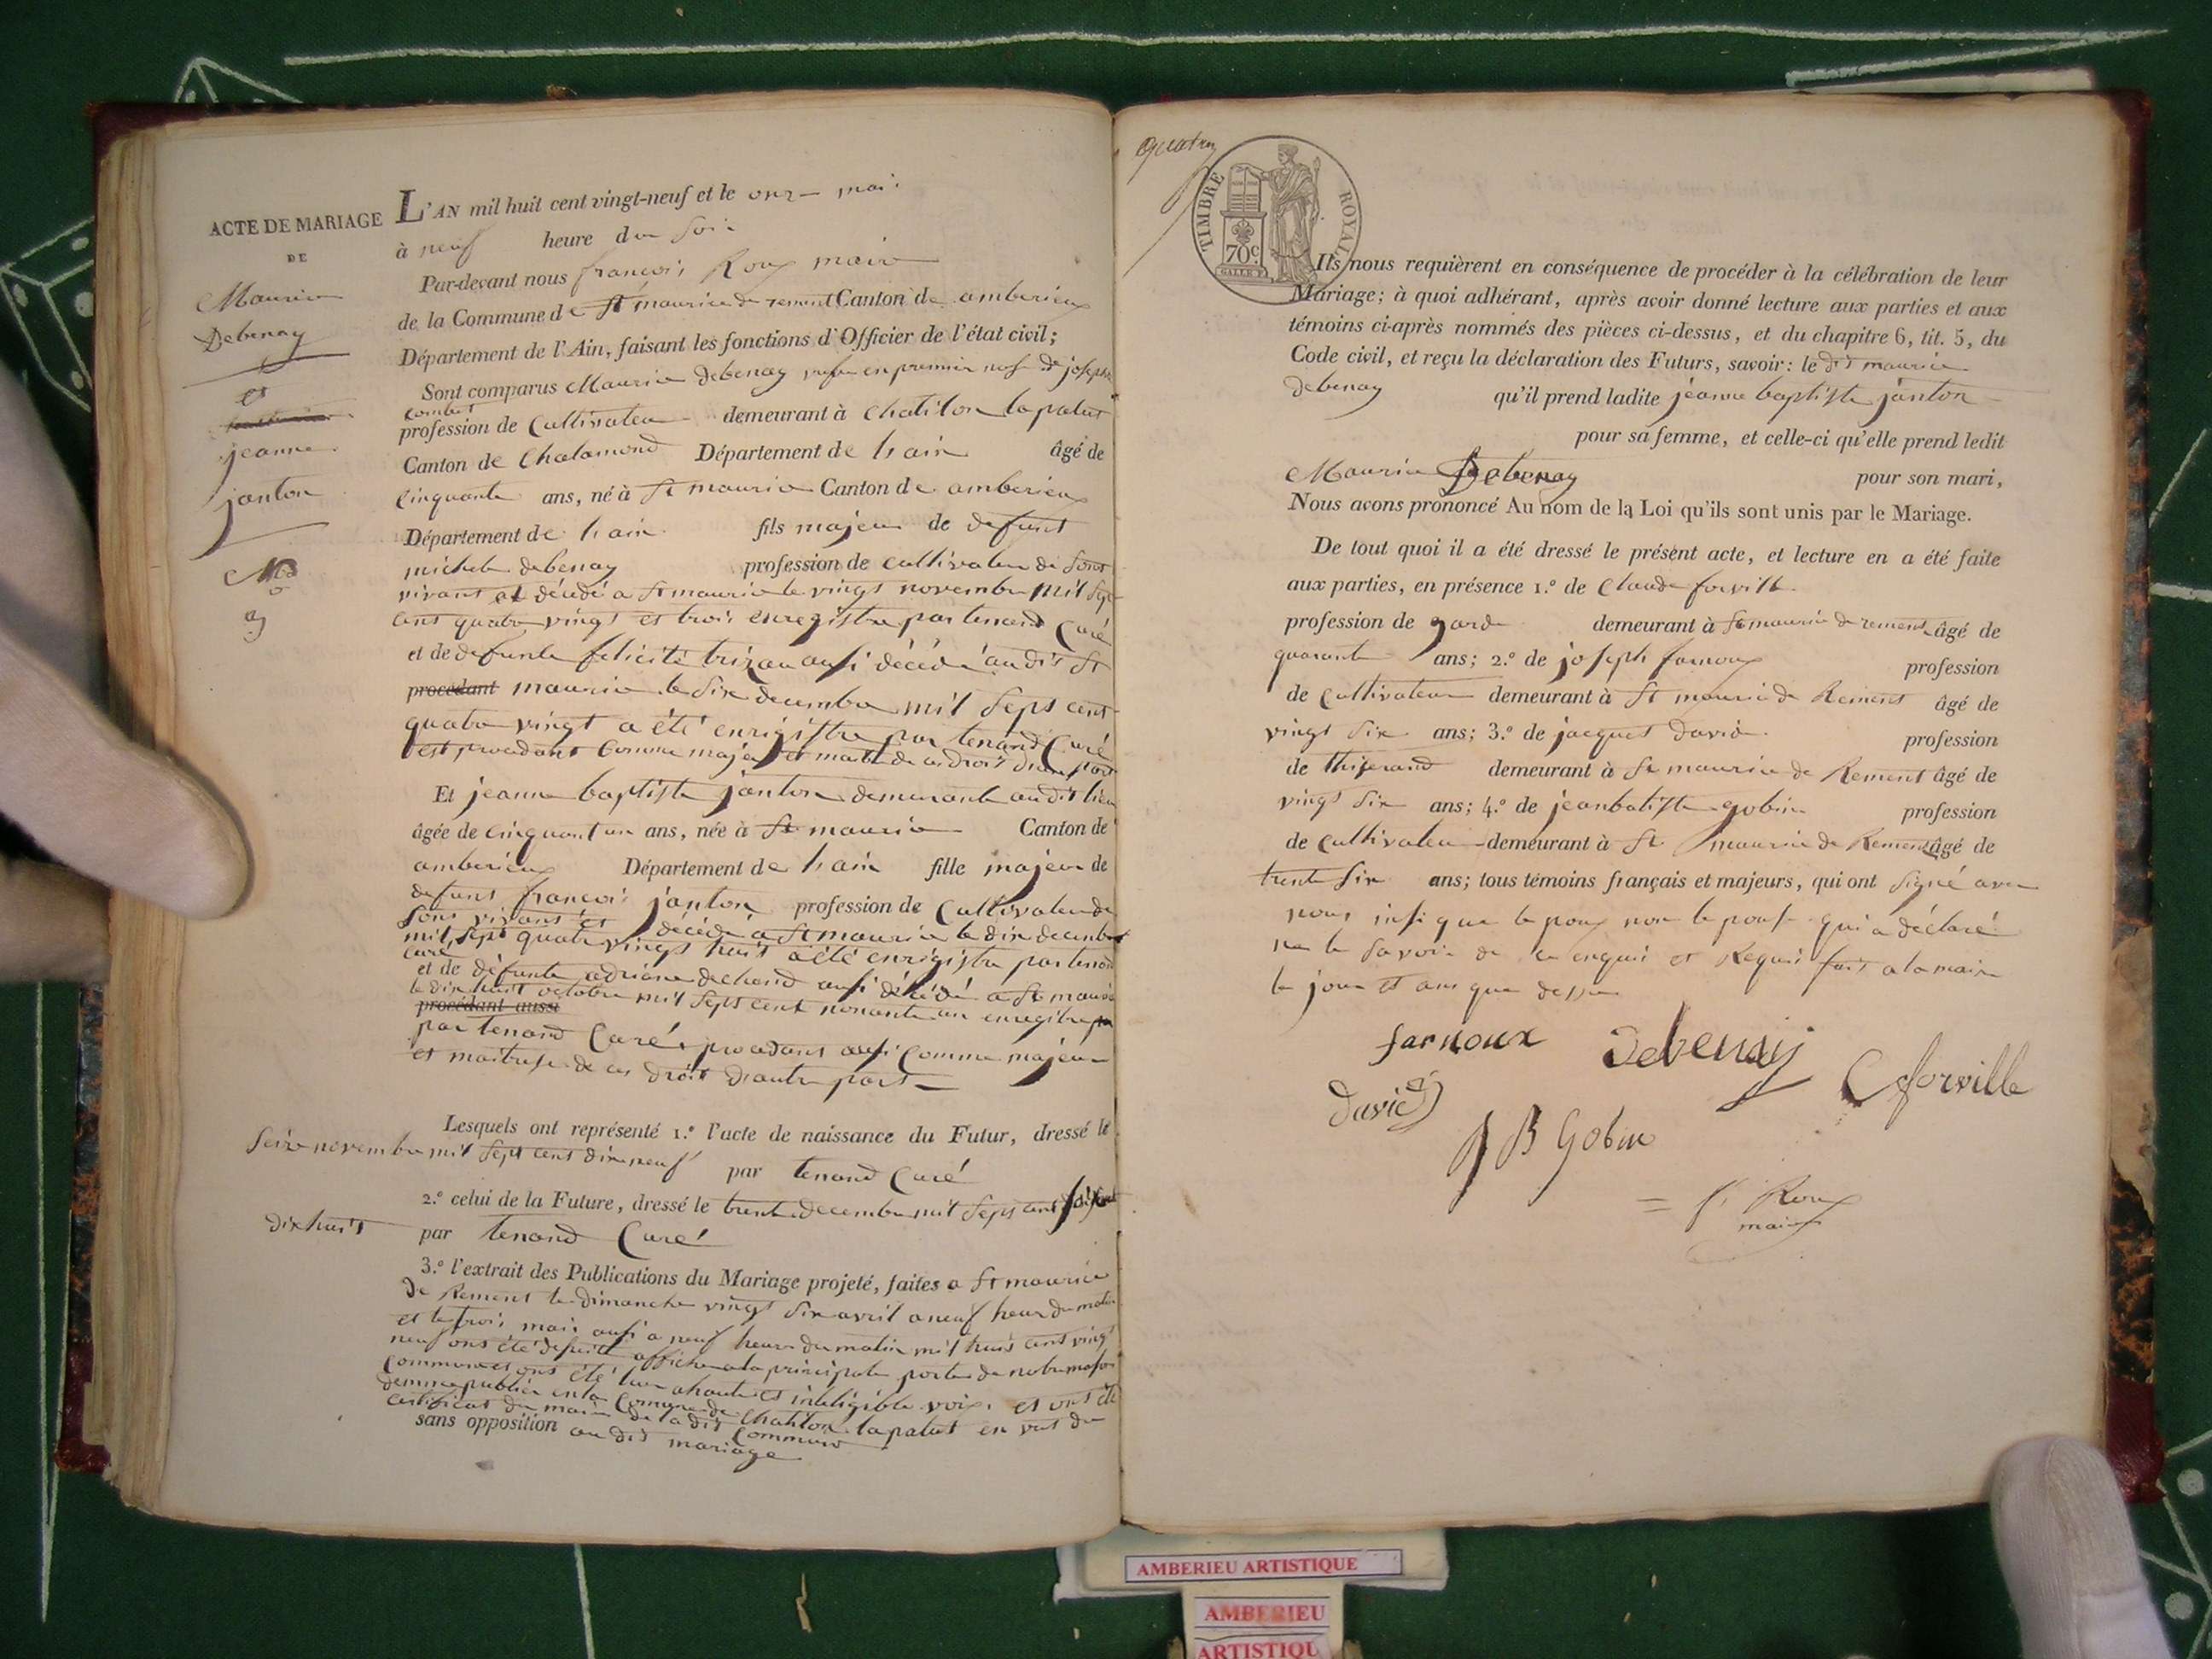 ACTE DE MARIAGE
DE
Maurice
Debenay
et
jeanne
janton
L'AN mil huit cent vingt-neuf et le onz mai
à neuf heure du soir
Par-devant nous françois Roux maire
de la Commune de St maurice de rement Canton de amberieux
Département de l'Ain, faisant les fonctions d'Officier de l'état civil;
Sont comparus Maurice debenay en premier de joseph
profession de Cultivateur demeurant à Chatilon lapalut
Canton de Chalamond Département de lain âgé de
cinquante ans, né à St maurice Canton de amberieux
Département de lain fils majeur de defunt
michel debenay profession de cultivateur de sont
vivant et décédé a St maurice le vingt novembre mil sept
cent quatre vingt et trois enregistre par tenand Curé
et de defunte felicité aussi décédé audit St
procédant maurice le six decembre mil sept cent
quatre vingt a été enrigistre par tenand Curé
et procedant comme majeur et maitre de ces droit d'une part
Et jeanne baptiste janton demeurante audit lieu
âgée de cinquant un ans, née à St maurice Canton de
amberieux Département de lain fille majeur de
defunt francois janton profession de Cultivateur de
sont vivant et décédé a St maurice le dix decembre
mil sept quatre vingt huit a été enrigistre par tenand
curé
et de défunte adriane dechand aussi décédé a St maurice
le dix huit octobre mil sept cent nonante un enregitre
procédant aussi
par tenand Curé, procedant aussi comme majeur
et maitresse de ces droit d'autre part
Lesquels ont représenté 1.º l'acte de naissance du Futur, dressé le
seize novembre mil sept cent dix neuf par tenand Curé
2.º celui de la Future, dressé le trente decembre mil sept cent
dix huit par tenand Curé
3.º l'extrait des Publications du Mariage projeté, faites a St maurice
de Rement le dimanche vingt six avril a neuf heur du matin
et le trois mai aussi a neuf heur du matin mil huit cent vingt
neuf ont été de suite affiche a la principale porte de notre maison
commune et ont été lue a haute et inteligible voix et ont été
de mme publiée en la Comune de Chatilon lapalut en vut du
certificat du maire de la dit Commune
sans opposition au dit mariage
quatre
TIMBRE ROYAL
70c.
Ils nous requièrent en conséquence de procéder à la célébration de leur
Mariage; à quoi adhérant, après avoir donné lecture aux parties et aux
témoins ci-après nommés des pièces ci-dessus, et du chapitre 6, tit. 5, du
Code civil, et reçu la déclaration des Futurs, savoir: le dit maurice
debenay qu'il prend ladite jeanne baptiste janton
pour sa femme, et celle-ci qu'elle prend ledit
Maurice Debenay pour son mari,
Nous avons prononcé Au nom de la Loi qu'ils sont unis par le Mariage.
De tout quoi il a été dressé le présent acte, et lecture en a été faite
aux parties, en présence 1.º de Claude forville
profession de garde demeurant à St maurice de remens âgé de
quarante ans; 2.º de joseph farnoux profession
de cultivateur demeurant à St maurice de Remens âgé de
vingt six ans; 3.º de jacques david profession
de thiserand demeurant à St maurice de Rement âgé de
vingt six ans; 4.º de jean batiste gobin profession
de cultivateur demeurant à St maurice de Remens âgé de
trente six ans; tous témoins français et majeurs, qui ont signé avec
nous insi que lepoux non lepouse qui a déclaré
ne le savoir de ce enquis et Requis fait a la mairie
le jour et ans que dessus
farnoux debenay C forville
david
J B Gobin
f. Roux
maire
AMBERIEU ARTISTIQUE
AMBERIEU
ARTISTIQU